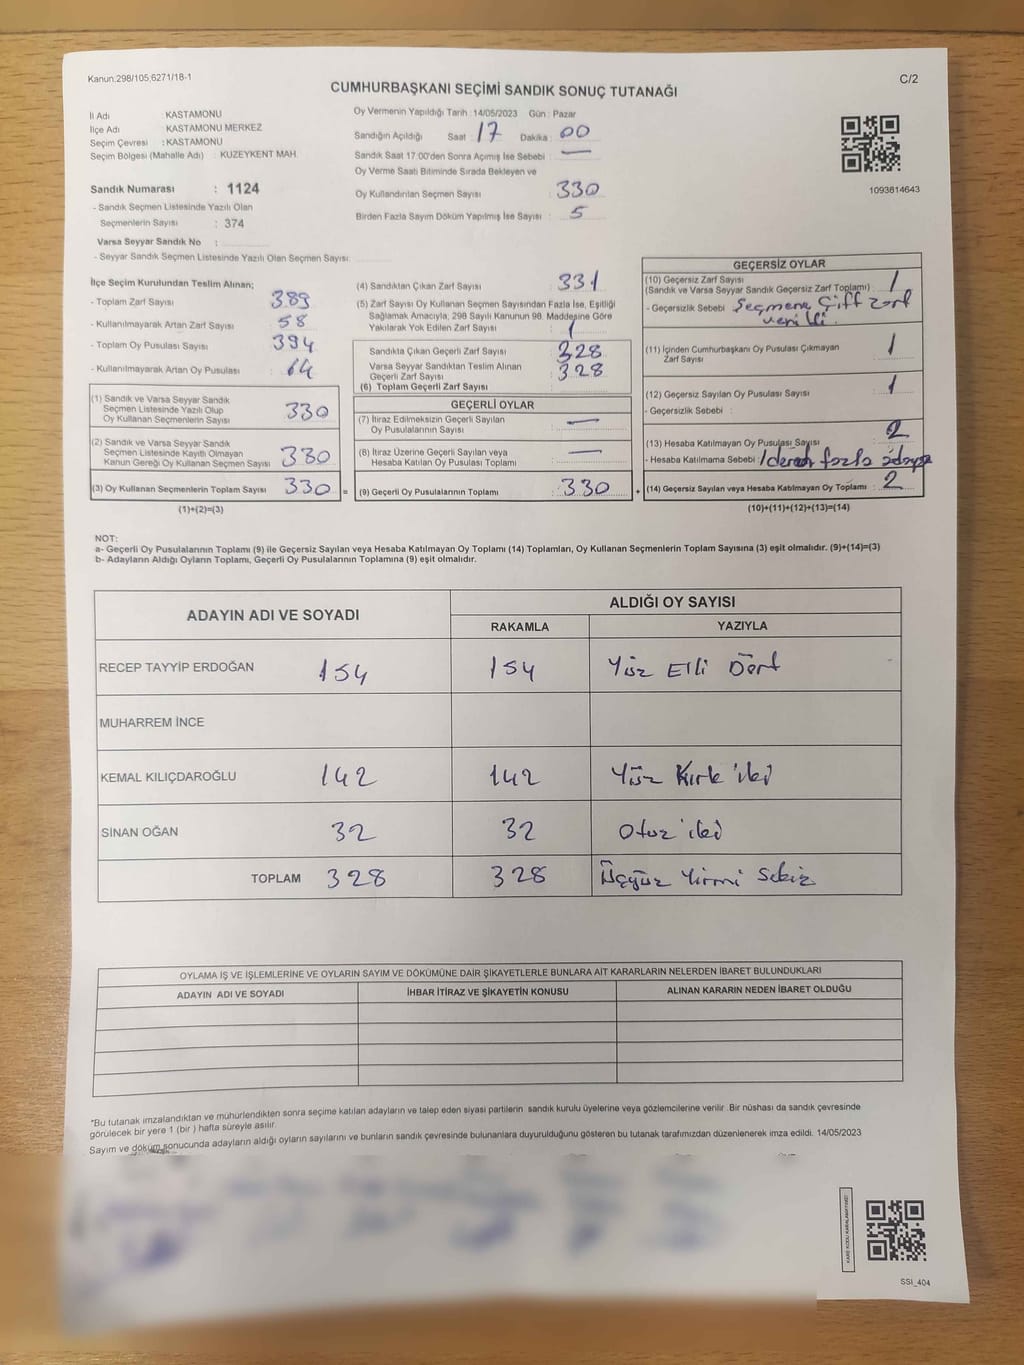 Kanun.298/105,6271/18-1
C/2
CUMHURBAŞKANI SEÇİMİ SANDIK SONUÇ TUTANAĞI
İl Adı KASTAMONU
İlçe Adı KASTAMONU MERKEZ
Seçim Çevresi : KASTAMONU
Seçim Bölgesi (Mahalle Adı) : KUZEYKENT MAH.
Sandık Numarası : 1124
- Sandık Seçmen Listesinde Yazılı Olan
Seçmenlerin Sayısı : 374
Varsa Seyyar Sandık No :
- Seyyar Sandık Seçmen Listesinde Yazılı Olan Seçmen Sayısı:
Oy Vermenin Yapıldığı Tarih : 14/05/2023 Gün : Pazar
Sandığın Açıldığı Saat : 17 Dakika : 00
Sandık Saat 17:00'den Sonra Açımış İse Sebebi : —
Oy Verme Saati Bitiminde Sırada Bekleyen ve
Oy Kullandırılan Seçmen Sayısı : 330
Birden Fazla Sayım Döküm Yapılmış İse Sayısı : 5
1093614643
İlçe Seçim Kurulundan Teslim Alınan;
- Toplam Zarf Sayısı : 389
- Kullanılmayarak Artan Zarf Sayısı : 58
- Toplam Oy Pusulası Sayısı : 394
- Kullanılmayarak Artan Oy Pusulası : 64
(1) Sandık ve Varsa Seyyar Sandık
Seçmen Listesinde Yazılı Olup
Oy Kullanan Seçmenlerin Sayısı : 330
(2) Sandık ve Varsa Seyyar Sandık
Seçmen Listesinde Kayıtlı Olmayan
Kanun Gereği Oy Kullanan Seçmen Sayısı : 330
(3) Oy Kullanan Seçmenlerin Toplam Sayısı : 330 =
(1)+(2)=(3)
(4) Sandıktan Çıkan Zarf Sayısı : 331
(5) Zarf Sayısı Oy Kullanan Seçmen Sayısından Fazla İse, Eşitliği
Sağlamak Amacıyla, 298 Sayılı Kanunun 98. Maddesine Göre
Yakılarak Yok Edilen Zarf Sayısı : 1
Sandıkta Çıkan Geçerli Zarf Sayısı : 328
Varsa Seyyar Sandıktan Teslim Alınan
Geçerli Zarf Sayısı : 328
(6) Toplam Geçerli Zarf Sayısı :
GEÇERLİ OYLAR
(7) İtiraz Edilmeksizin Geçerli Sayılan
Oy Pusulalarının Sayısı : —
(8) İtiraz Üzerine Geçerli Sayılan veya
Hesaba Katılan Oy Pusulası Toplamı : —
(9) Geçerli Oy Pusulalarının Toplamı : 330 +
GEÇERSİZ OYLAR
(10) Geçersiz Zarf Sayısı
(Sandık ve Varsa Seyyar Sandık Geçersiz Zarf Toplamı) : 1
- Geçersizlik Sebebi : Seçmene Çift Zarf
verildi.
(11) İçinden Cumhurbaşkanı Oy Pusulası Çıkmayan
Zarf Sayısı : 1
(12) Geçersiz Sayılan Oy Pusulası Sayısı : 1
- Geçersizlik Sebebi :
(13) Hesaba Katılmayan Oy Pusulası Sayısı : 2
- Hesaba Katılmama Sebebi : 1'den fazla adaya
(14) Geçersiz Sayılan veya Hesaba Katılmayan Oy Toplamı : 2
(10)+(11)+(12)+(13)=(14)
NOT:
a- Geçerli Oy Pusulalarının Toplamı (9) ile Geçersiz Sayılan veya Hesaba Katılmayan Oy Toplamı (14) Toplamları, Oy Kullanan Seçmenlerin Toplam Sayısına (3) eşit olmalıdır. (9)+(14)=(3)
b- Adayların Aldığı Oyların Toplamı, Geçerli Oy Pusulalarının Toplamına (9) eşit olmalıdır.
ADAYIN ADI VE SOYADI ALDIĞI OY SAYISI
RAKAMLA YAZIYLA
RECEP TAYYİP ERDOĞAN 154 154 Yüz Elli Dört
MUHARREM İNCE
KEMAL KILIÇDAROĞLU 142 142 Yüz Kırk iki
SİNAN OĞAN 32 32 Otuz iki
TOPLAM 328 328 Üçyüz Yirmi Sekiz
OYLAMA İŞ VE İŞLEMLERİNE VE OYLARIN SAYIM VE DÖKÜMÜNE DAİR ŞİKAYETLERLE BUNLARA AİT KARARLARIN NELERDEN İBARET BULUNDUKLARI
ADAYIN ADI VE SOYADI İHBAR İTİRAZ VE ŞİKAYETİN KONUSU ALINAN KARARIN NEDEN İBARET OLDUĞU
"Bu tutanak imzalandıktan ve mühürlendikten sonra seçime katılan adayların ve talep eden siyasi partilerin sandık kurulu üyelerine veya gözlemcilerine verilir. Bir nüshası da sandık çevresinde
görülecek bir yere 1 (bir) hafta süreyle asılır.
Sayım ve döküm sonucunda adayların aldığı oyların sayılarını ve bunların sandık çevresinde bulunanlara duyurulduğunu gösteren bu tutanak tarafımızdan düzenlenerek imza edildi. 14/05/2023
SSI_404